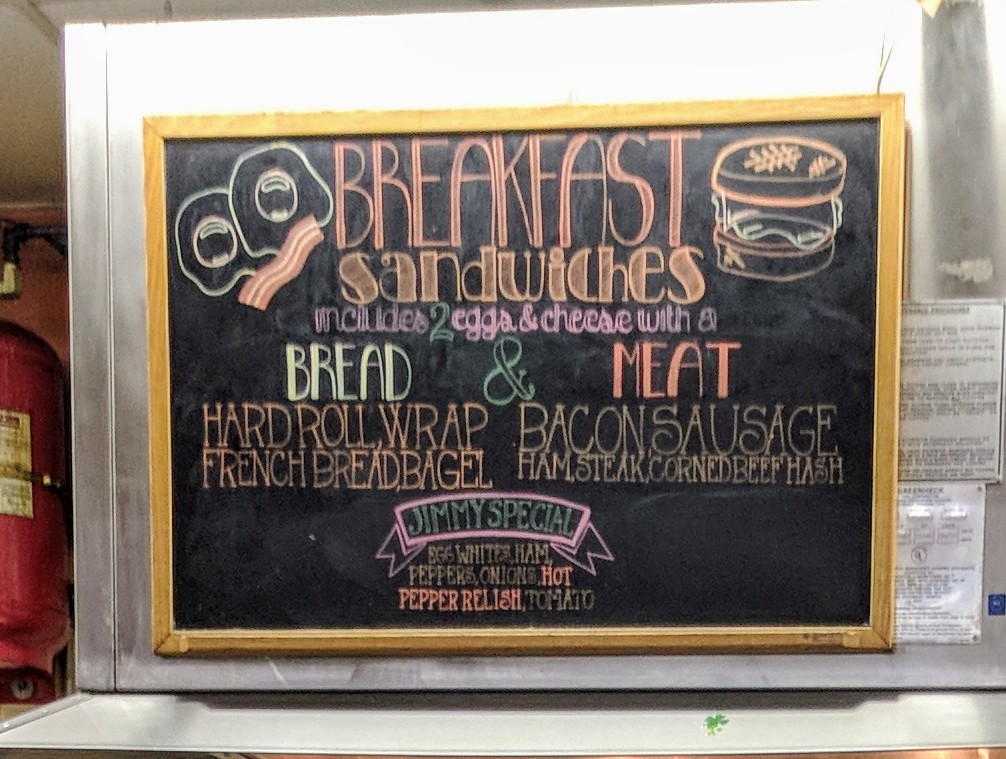 BREAKFAST
sandwiches
includes 2 eggs & cheese with a
BREAD & MEAT
HARD ROLL, WRAP
FRENCH BREAD, BAGEL
BACON, SAUSAGE
HAM, STEAK, CORNED BEEF HASH
JIMMY SPECIAL
EGG WHITES, HAM,
PEPPERS, ONIONS, HOT
PEPPER RELISH, TOMATO
PROCEDURES
GREENHECK